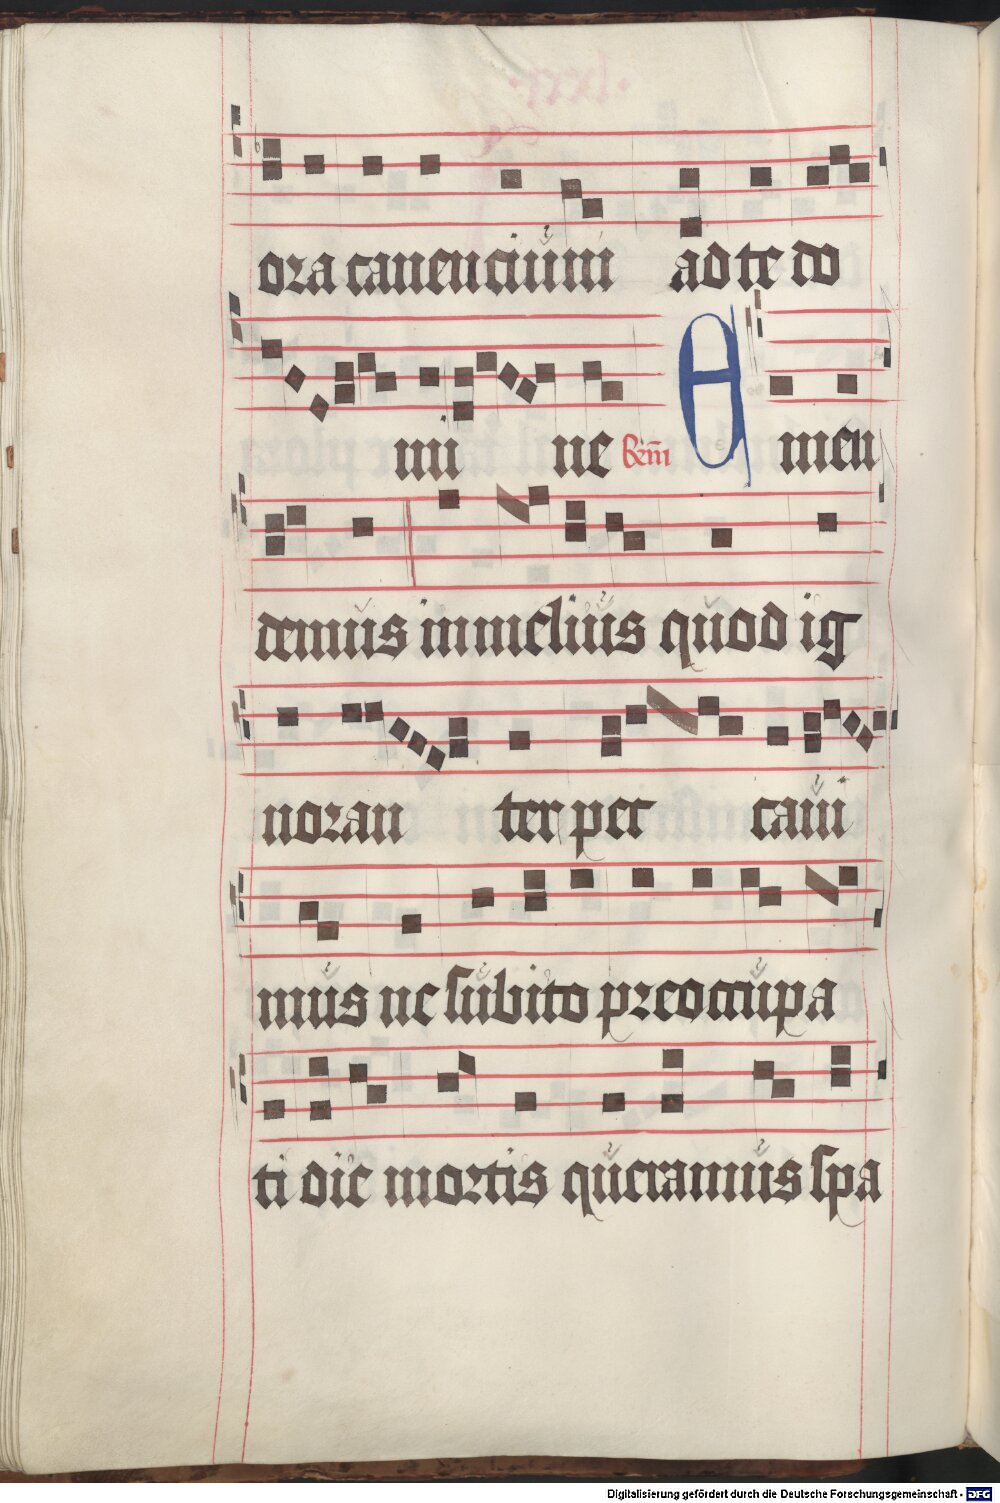 ora canencium ad te do
mi ne Rm̄ Emen
demus in melius quod ig
noran ter pec caui
mus ne subito preoccupa
ti die mortis queramus spa
Digitalisierung gefördert durch die Deutsche Forschungsgemeinschaft - DFG